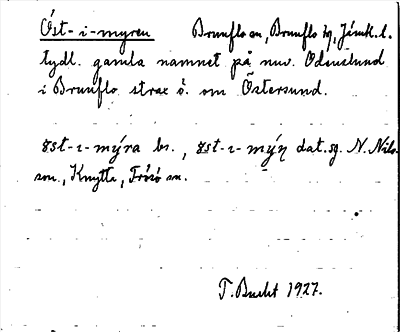 Öst-i-myren Brunflo sn, Brunflo tg, Jämtl. l.
tydl. gamla namnet på nuv. Odenslund
i Brunflo strax ö. om Östersund.
øst-ı-mýra bs., øst-ı-mýṇ dat. sg. N. Nils-
son, Knytta, Frösö sn.
T. Bucht 1927.